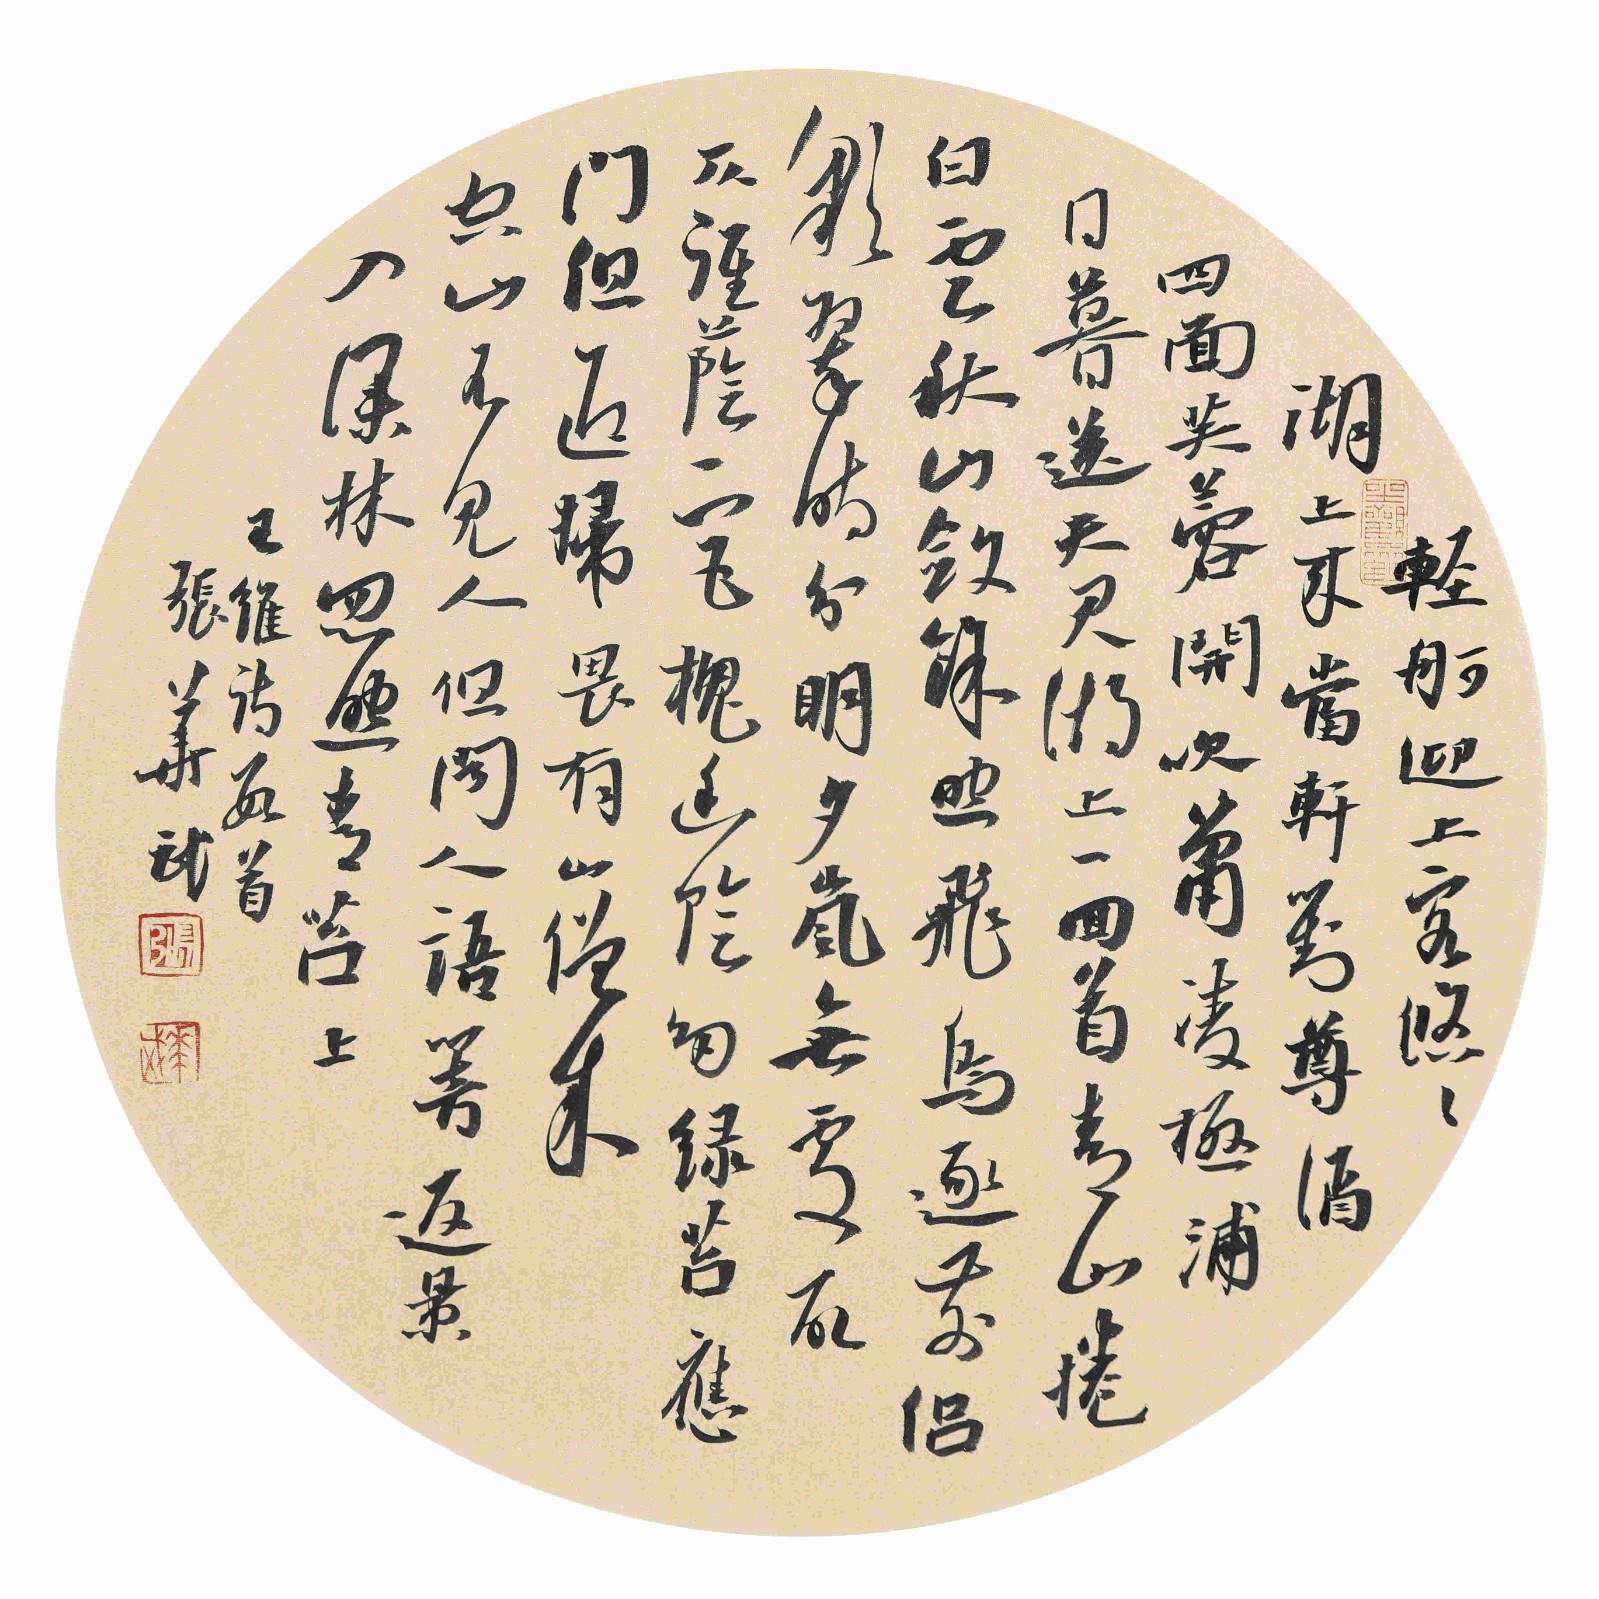 輕舸迎上客悠〻
湖上來當軒對尊酒
四面芙蓉開吹簫凌極浦
日暮送夫君湖上一回首青山捲
白雲秋山斂餘照飛鳥逐前侶
彩翠時分明夕嵐無處所
仄徑蔭宮槐幽陰多綠苔應
門但迎掃畏有山僧來
空山不見人但聞人語響返景
入深林照青苔上
王維詩數首
張華武